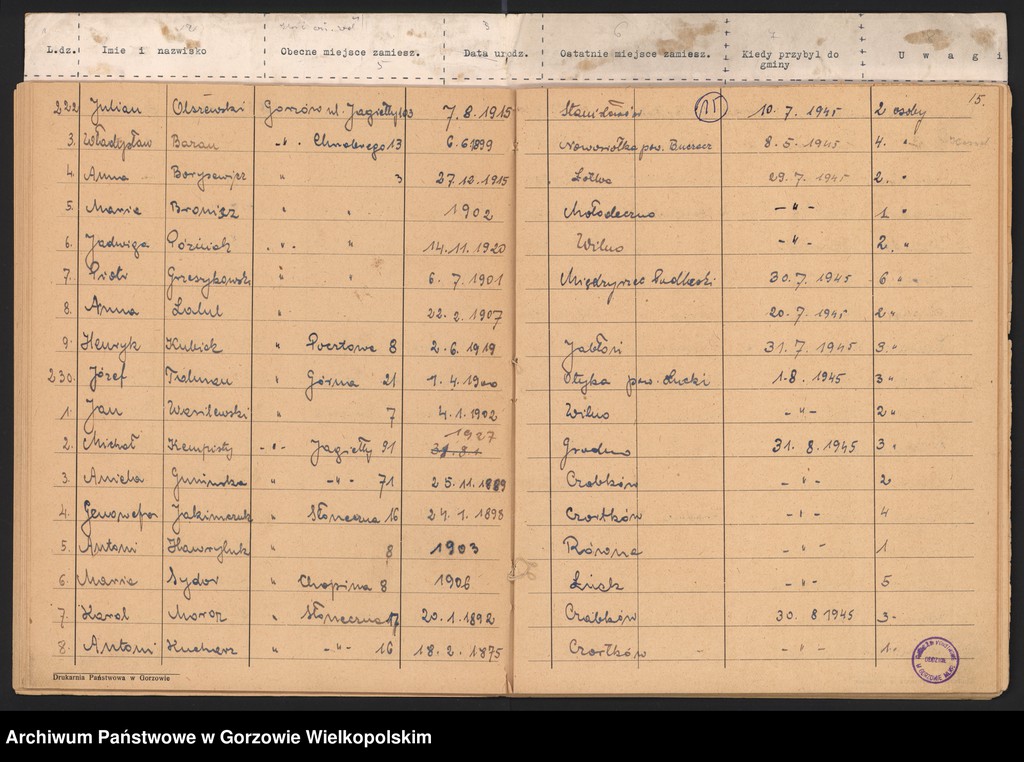 L.dz. Imie i nazwisko Obecne miejsce zamiesz. Data urodz. Ostatnie miejsce zamiesz. Kiedy przybył do gminy U w a g i
15.
222 Julian Olszewski Gorzów ul. Jagiełły 103 7.8.1915 Stanisławów (15) 10.7.1945 2 osoby
3. Władysław Baran -"- Chrobrego 13 6.6.1899 pow. Buczacz 8.5.1945 4. "
4. Anna Borysewicz " 3 27.12.1915 Łotwa 29.7.1945 2. "
5. Maria " " 1902 Mołodeczno -"- 1 "
6. Jadwiga -"- " 14.11.1920 Wilno -"- 2. "
7. Piotr Grzesykowski " " 6.7.1901 Międzyrzec Podlaski 30.7.1945 6 "
8. Anna " 22.2.1907 20.7.1945 2 "
9. Henryk Kubick " Pocztowa 8 2.6.1919 Jabłoń 31.7.1945 3 "
230. Józef " Górna 21 1.4.1900 Ołyka pow. Łucki 1.8.1945 3 "
1. Jan Wasilewski " 7 4.1.1902 Wilno -"- 2 "
2. Michał Kempisty -"- Jagiełły 91 1927 Grodno 31.8.1945 3 "
3. Aniela " -"- 71 25.11.1889 -"- 2
4. Genowefa Jakimczuk " Słoneczna 16 24.1.1898 Czortków -"- 4
5. Antoni Hawryluk " 8 1903 Równe -"- 1
6. Maria Sydor " Chopina 8 1906 Łuck -"- 5
7. Karol Moroz " Słoneczna 17 20.1.1892 30.8.1945 3-
8. Antoni Kucharz " -"- 16 18.2.1875 Czortków - -"- 1-
Drukarnia Państwowa w Gorzowie
Archiwum Państwowe w Gorzowie Wielkopolskim